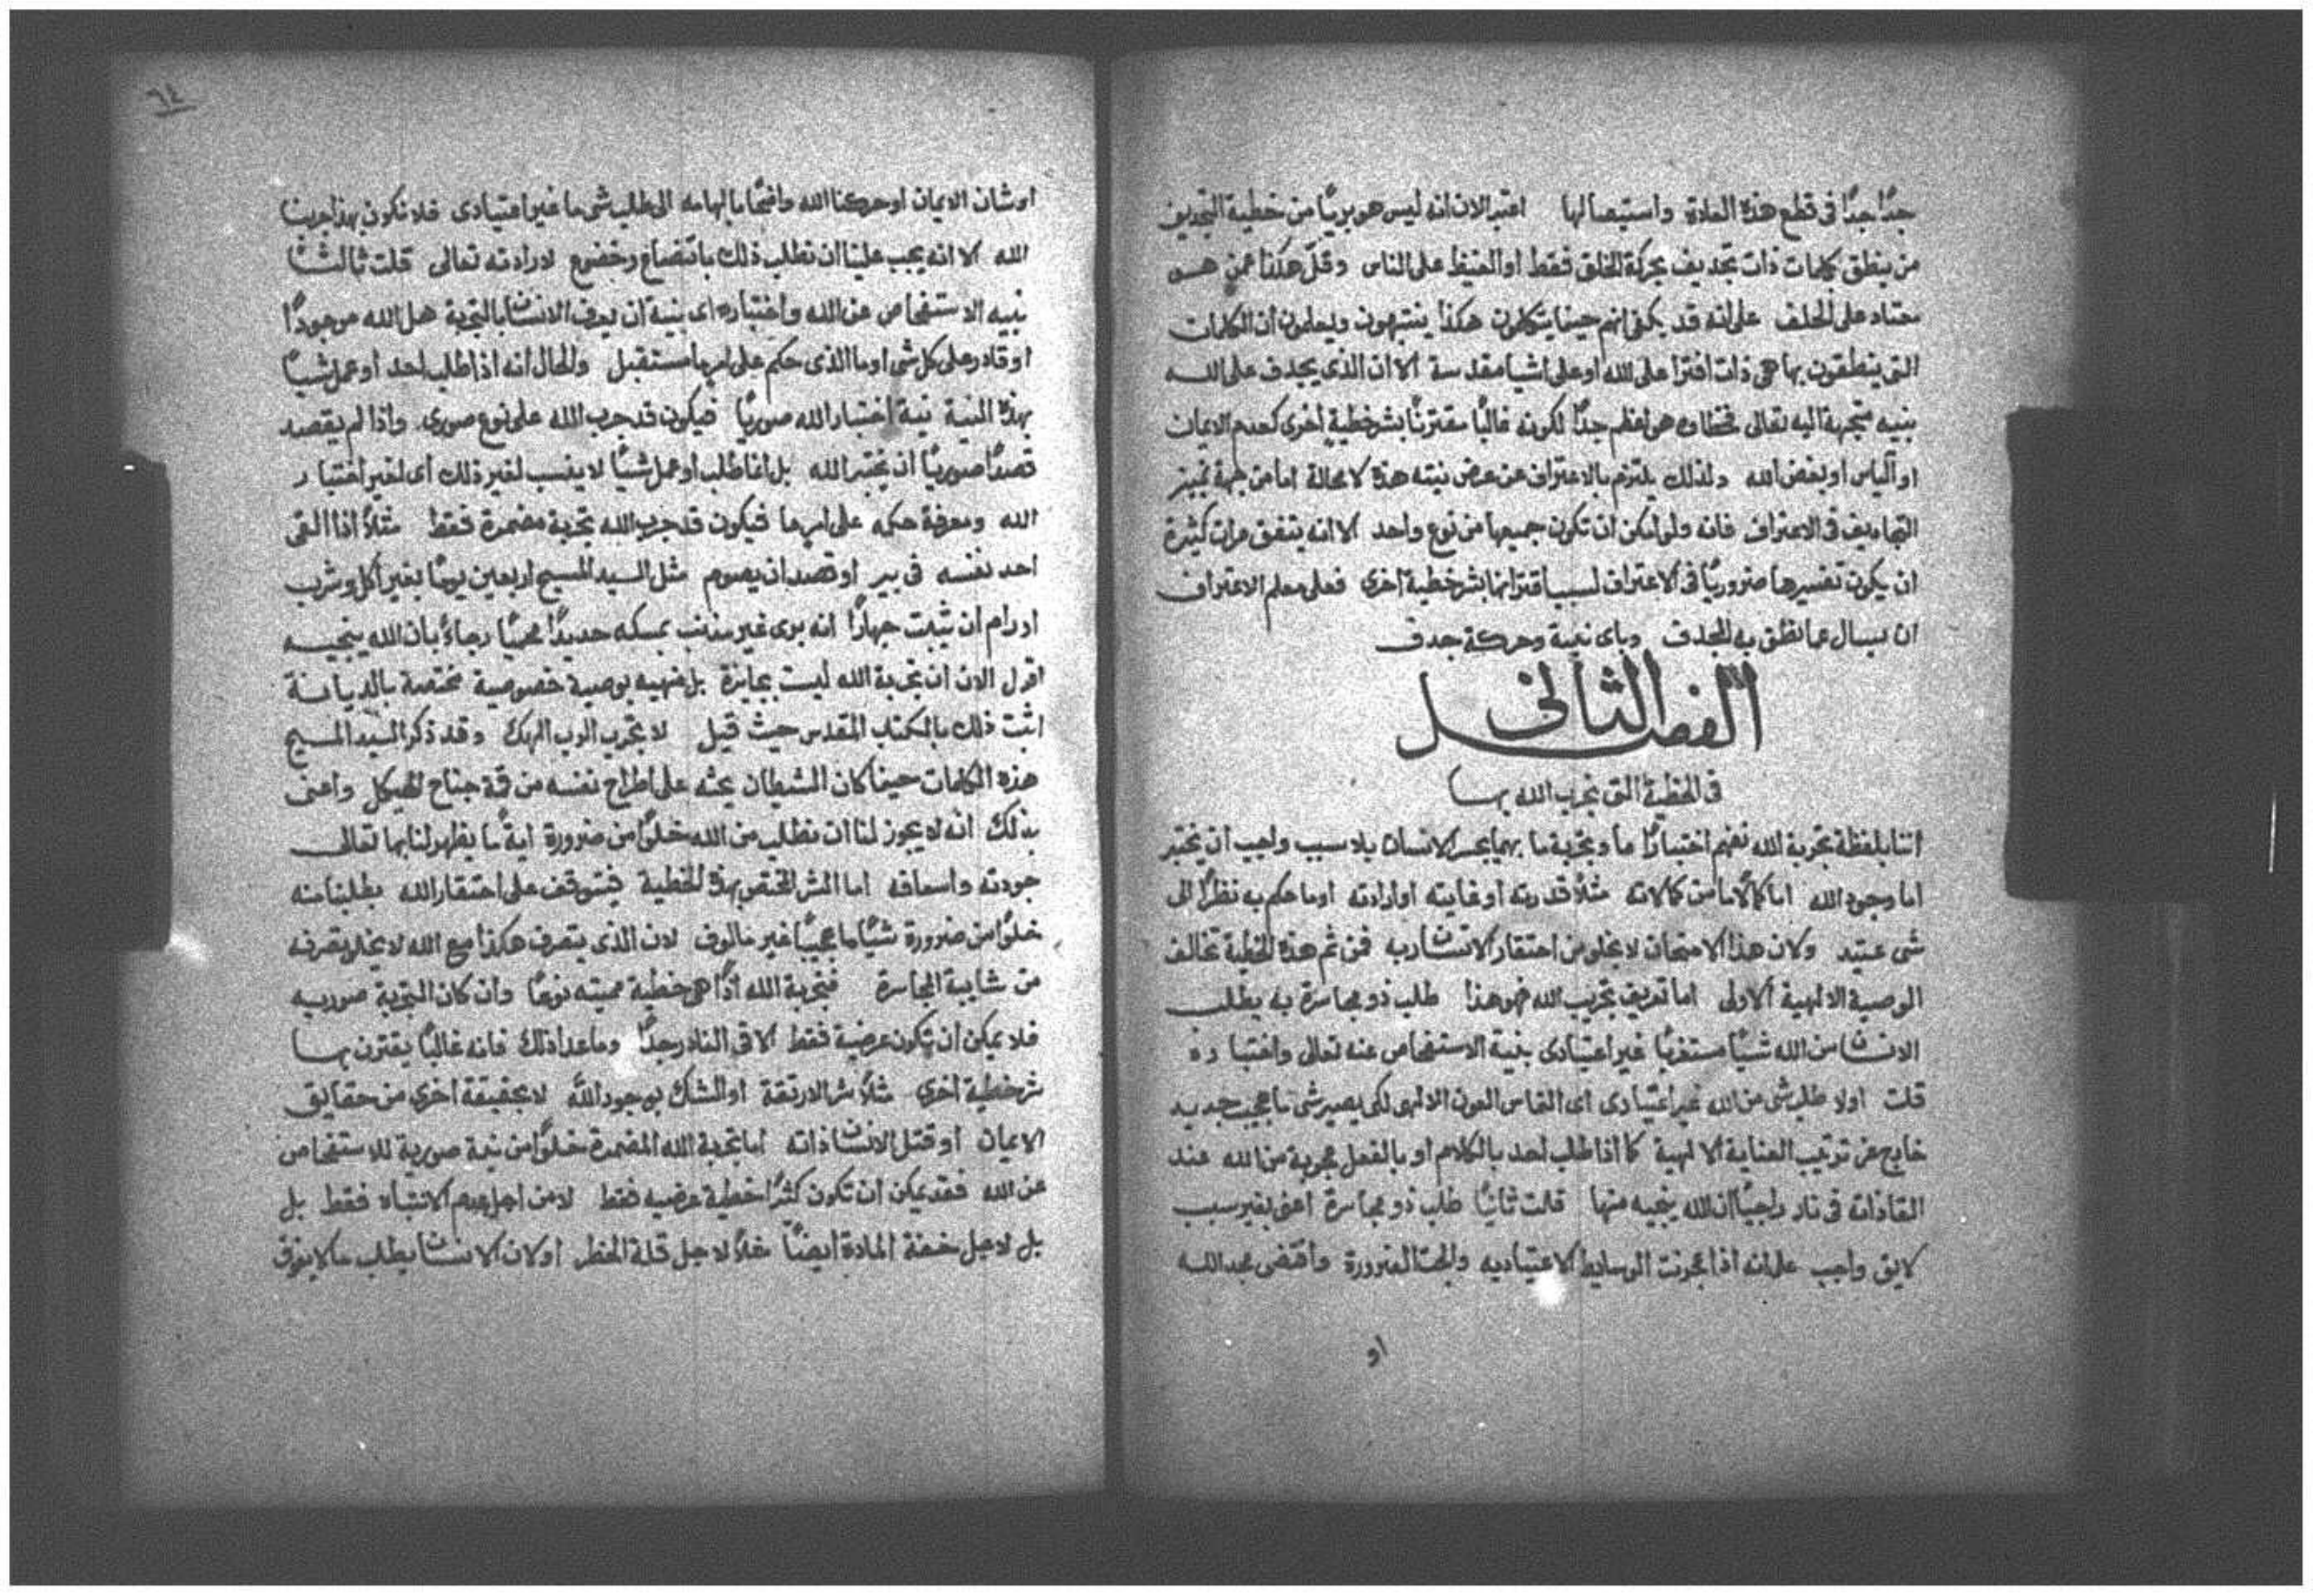 جدًا جدًا في قطع هذه العادة واستيصالها اعتبر الان انه ليس هو بريًا من خطية التجديف
من ينطق بكلمات ذات تجديف بحركة الخلق فقط او الغيظ على الناس وقل هكذا عمن هو
معتاد على الحلف على انه قد يكفي انهم حينما يتكلمون هكذا ينتبهون ويعلمون ان الكلمات
التي ينطقون بها هي ذات افترا على الله او على اشيا مقدسة الا ان الذي يجدف على الله
بنيه متجهة اليه تعالى فخطاوه هو اعظم جدًا لكونه غالبًا مقترنًا بشر خطية اخرى كعدم الايمان
او الياس او بغض الله ولذلك يلتزم بالاعتراف عن عرض نيته هذه لا محالة اما من جهة تمييز
التجاديف في الاعتراف فانه ولو امكن ان تكون جميعها من نوع واحد الا انه يتفق مرات كثيرة
ان يكون تفسيرها ضروريًا في الاعتراف لسبب اقترانها بشر خطية اخرى فعلى معلم الاعتراف
ان يسال عما نطق به المجدف وباى نية وحركة جدف
الفصل الثاني
في الخطية التي نجرب الله بها
اننا بلفظة تجربة الله نفهم اختبارًا ما وتجربة ما بهما يجسر الانسان بلا سبب واجب ان يختبر
اما وجود الله اما كمالًا ما من كمالاته مثلًا قدرته او غايته او ارادته او ما حكم به نظرًا الى
شي عتيد ولان هذا الامتحان لا يخلو من احتقار الانسان ربه فمن ثم هذه الخطية تخالف
الوصية الالهية الاولى اما تعريف تجريب الله فهو هذا طلب ذو مجاسرة به يطلب
الانسان من الله شيًا مستغربًا غير اعتيادي بنية الاستفحاص عنه تعالى واختباره
قلت اولا طلب شي من الله غير اعتيادي اى التماس العون الالهي لكي يصير شي ما عجيب جديد
خارج عن ترتيب العناية الالهية كما اذا طلب احد بالكلام او بالفعل عجوبة من الله عند
القا ذاته في نار راجيًا ان الله ينجيه منها قلت ثانيًا طلب ذو مجاسرة اعني بغير سبب
لايق واجب على انه اذا عجزت الوسايط الاعتياديه والجت الضرورة واقتضى مجد الله
او
٦٤
او شان الايمان او حركنا الله واضحًا بالهامه الى طلب شي ما غير اعتيادي فلا نكون بهذا جربنا
الله الا انه يجب علينا ان نطلب ذلك باتضاع وخضوع لارادته تعالى قلت ثالثًا
بنيه الاستفحاص عن الله واختباره اى بنية ان يعرف الانسان بالتجربة هل الله موجودًا
او قادر على كل شي او ما الذي حكم على امر ما مستقبل والحال انه اذا طلب احد او عمل شيًا
بهذه النية نية اختبار الله صوريًا فيكون قد جرب الله على نوع صوري. واذا لم يقصد
قصدًا صوريًا ان يختبر الله بل انما طلب او عمل شيًا لا ينسب لغير ذلك اى لغير اختبار
الله ومعرفة حكمه على امر ما فيكون قد جرب الله تجربة مضمرة فقط مثلًا اذا القى
احد نفسه في بير او قصد ان يصوم مثل السيد المسيح اربعين يومًا بغير اكل وشرب
او رام ان يثبت جهارًا انه برى غير مذنب بمسكه حديدًا محميًا رجاءً بان الله ينجيه
اقول الان ان تجربة الله ليست بجايزة بل منهيه بوصية خصوصية مختصة بالديانة
اثبت ذلك بالكتاب المقدس حيث قيل لا تجرب الرب الهك وقد ذكر السيد المسيح
هذه الكلمات حينما كان الشيطان يحثه على اطراح نفسه من قمة جناح الهيكل واعنى
بذلك انه لا يجوز لنا ان نطلب من الله خلوًا من ضرورة ايةً ما يظهر لنا بها تعالى
جودته واسعافه اما الشر المختص بهذه الخطية فيتوقف على احتقار الله بطلبنا منه
خلوًا من ضرورة شيًا ما عجيبًا غير مالوف لان الذي يتصرف هكذا مع الله لا يخلو تصرفه
من شايبة المجاسرة فتجربة الله اذًا هي خطية مميته نوعًا وان كان التجربة صوريه
فلا يمكن ان تكون عرضية فقط الا في النادر جدًا وما عدا ذلك فانه غالبًا يقترن بها
شر خطية اخرى مثلًا شر الارتقة او الشك بوجود الله لا بحقيقة اخرى من حقايق
الايمان او قتل الانسان ذاته اما تجربة الله المضمرة خلوًا من نية صورية للاستفحاص
عن الله فقد يمكن ان تكون كثرًا خطية عرضيه فقط لا من اجل عدم الانتباه فقط بل
بل لاجل خفة المادة ايضًا مثلًا لاجل قلة الخطر او لان الانسان يطلب ما لا يفوق